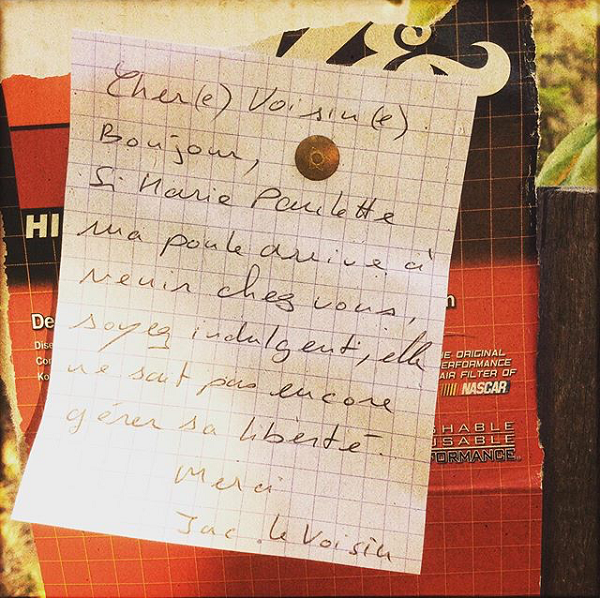 Cher(e) Voisin(e).
Bonjour,
Si Marie Paulette
ma poule arrive à
venir chez vous,
soyez indulgent, elle
ne sait pas encore
gérer sa liberté.
Merci
Jac le Voisin
HI
De
Dise
Con
Ko
n
E ORIGINAL
ERFORMANCE
AIR FILTER OF
NASCAR
SHABLE
USABLE
FORMANCE